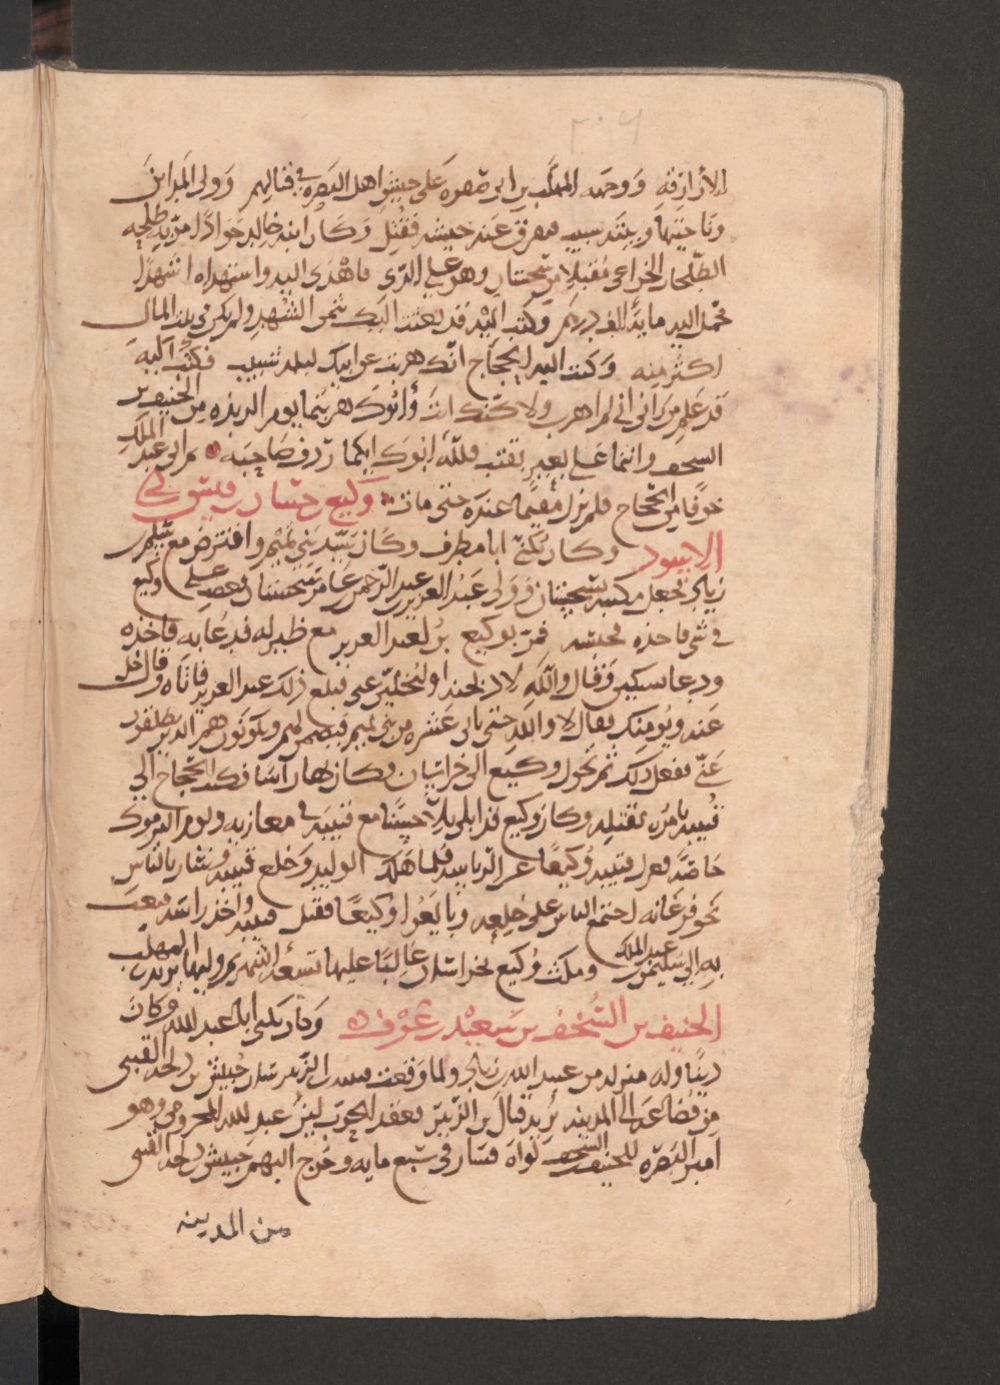 ٢٠٦
الأزارقة ووجه المهلب بن ابي صفره على جيش اهل البصره في قتالهم وولى المداين
وناحيتها وبيته شبيب فتفرق عنه جيشه فقتل وكان ابنه خالد جوادا مر به طلحه
الطلحات الخزاعي مقبلا من سجستان وهو على الري فاهدى اليه واستهداه شهدا
فحمل اليه ماية الف درهم وكتب اليه قد بعثت اليك بثمن الشهد ولم يكن في بيت المال
اكثر منه وكتب اليه الحجاج انك هربت عن ابيك ليله شبيب فكتب اليه
قد علم من راني اني لم اهرب ولاكنك انت وابوك هربتما يوم الربذه من الحنيف بن
السجف وانتما على بعير بقتب فلله ابوك ايكما ردف صاحبه ثم اتى عبد الملك
خوفا من الحجاج فلم يزل مقيما عنده حتى مات وكيع بن حسان بن قيس بن ابي
الاسود وكان يكنى ابا مطرف وكان سيد بني تميم وافترض مع سلم بن
زياد فجعل مكتبه بسجستان وولى عبد العزيز بن عبد الله بن عامر سجستان فغضب على وكيع
في شي فاخذه فحبسه فمر بوكيع بن لعبد العزيز مع ظئر له فدعا به فاخذه
ودعا بسكين وقال والله لاذبحنه او لتخلين عني فبلغ ذلك عبد العزيز فاتاه وقال خل
عنه ونومنك فقال لا والله حتى ياتي عشره من بني تميم فيضمن لهم ويكونون هم الذين يطلقون
عني ففعل ذلك ثم تحول وكيع الى خراسان فكان بها راسا فكتب الحجاج الى
قتيبه يامره بقتله وكان وكيع قد ابلى بلاء حسنا مع قتيبه في مغازيه ويوم الترك
خاصه فعزل قتيبه وكيعا عن الرياسه فلما هلك الوليد وخلع قتيبه وسار بالناس
نحو فرغانه اجتمع الناس على خلعه وبايعوا وكيعا فقتل قتيبه واخذ راسه فبعث
به الى سليمن بن عبد الملك ومكث وكيع بخراسان غالبا عليها تسعة اشهر ثم وليها يزيد بن المهلب
الحنيف بن السجف بن سعيد بن عوف وكان يكنى ابا عبد الله وكان
دينا وله منزله من عبيد الله بن زياد ولما وقعت فتنه ابن الزبير سار حبيش بن دلجه القيني
من قضاعه الى المدينه يريد قتال بن الزبير فعقد الحرث بن عبد الله المخزومي وهو
امير البصره للحنيف بن السجف لواء فسار في سبع مايه وخرج اليهم حبيش بن دلجه القيني
من المدينه